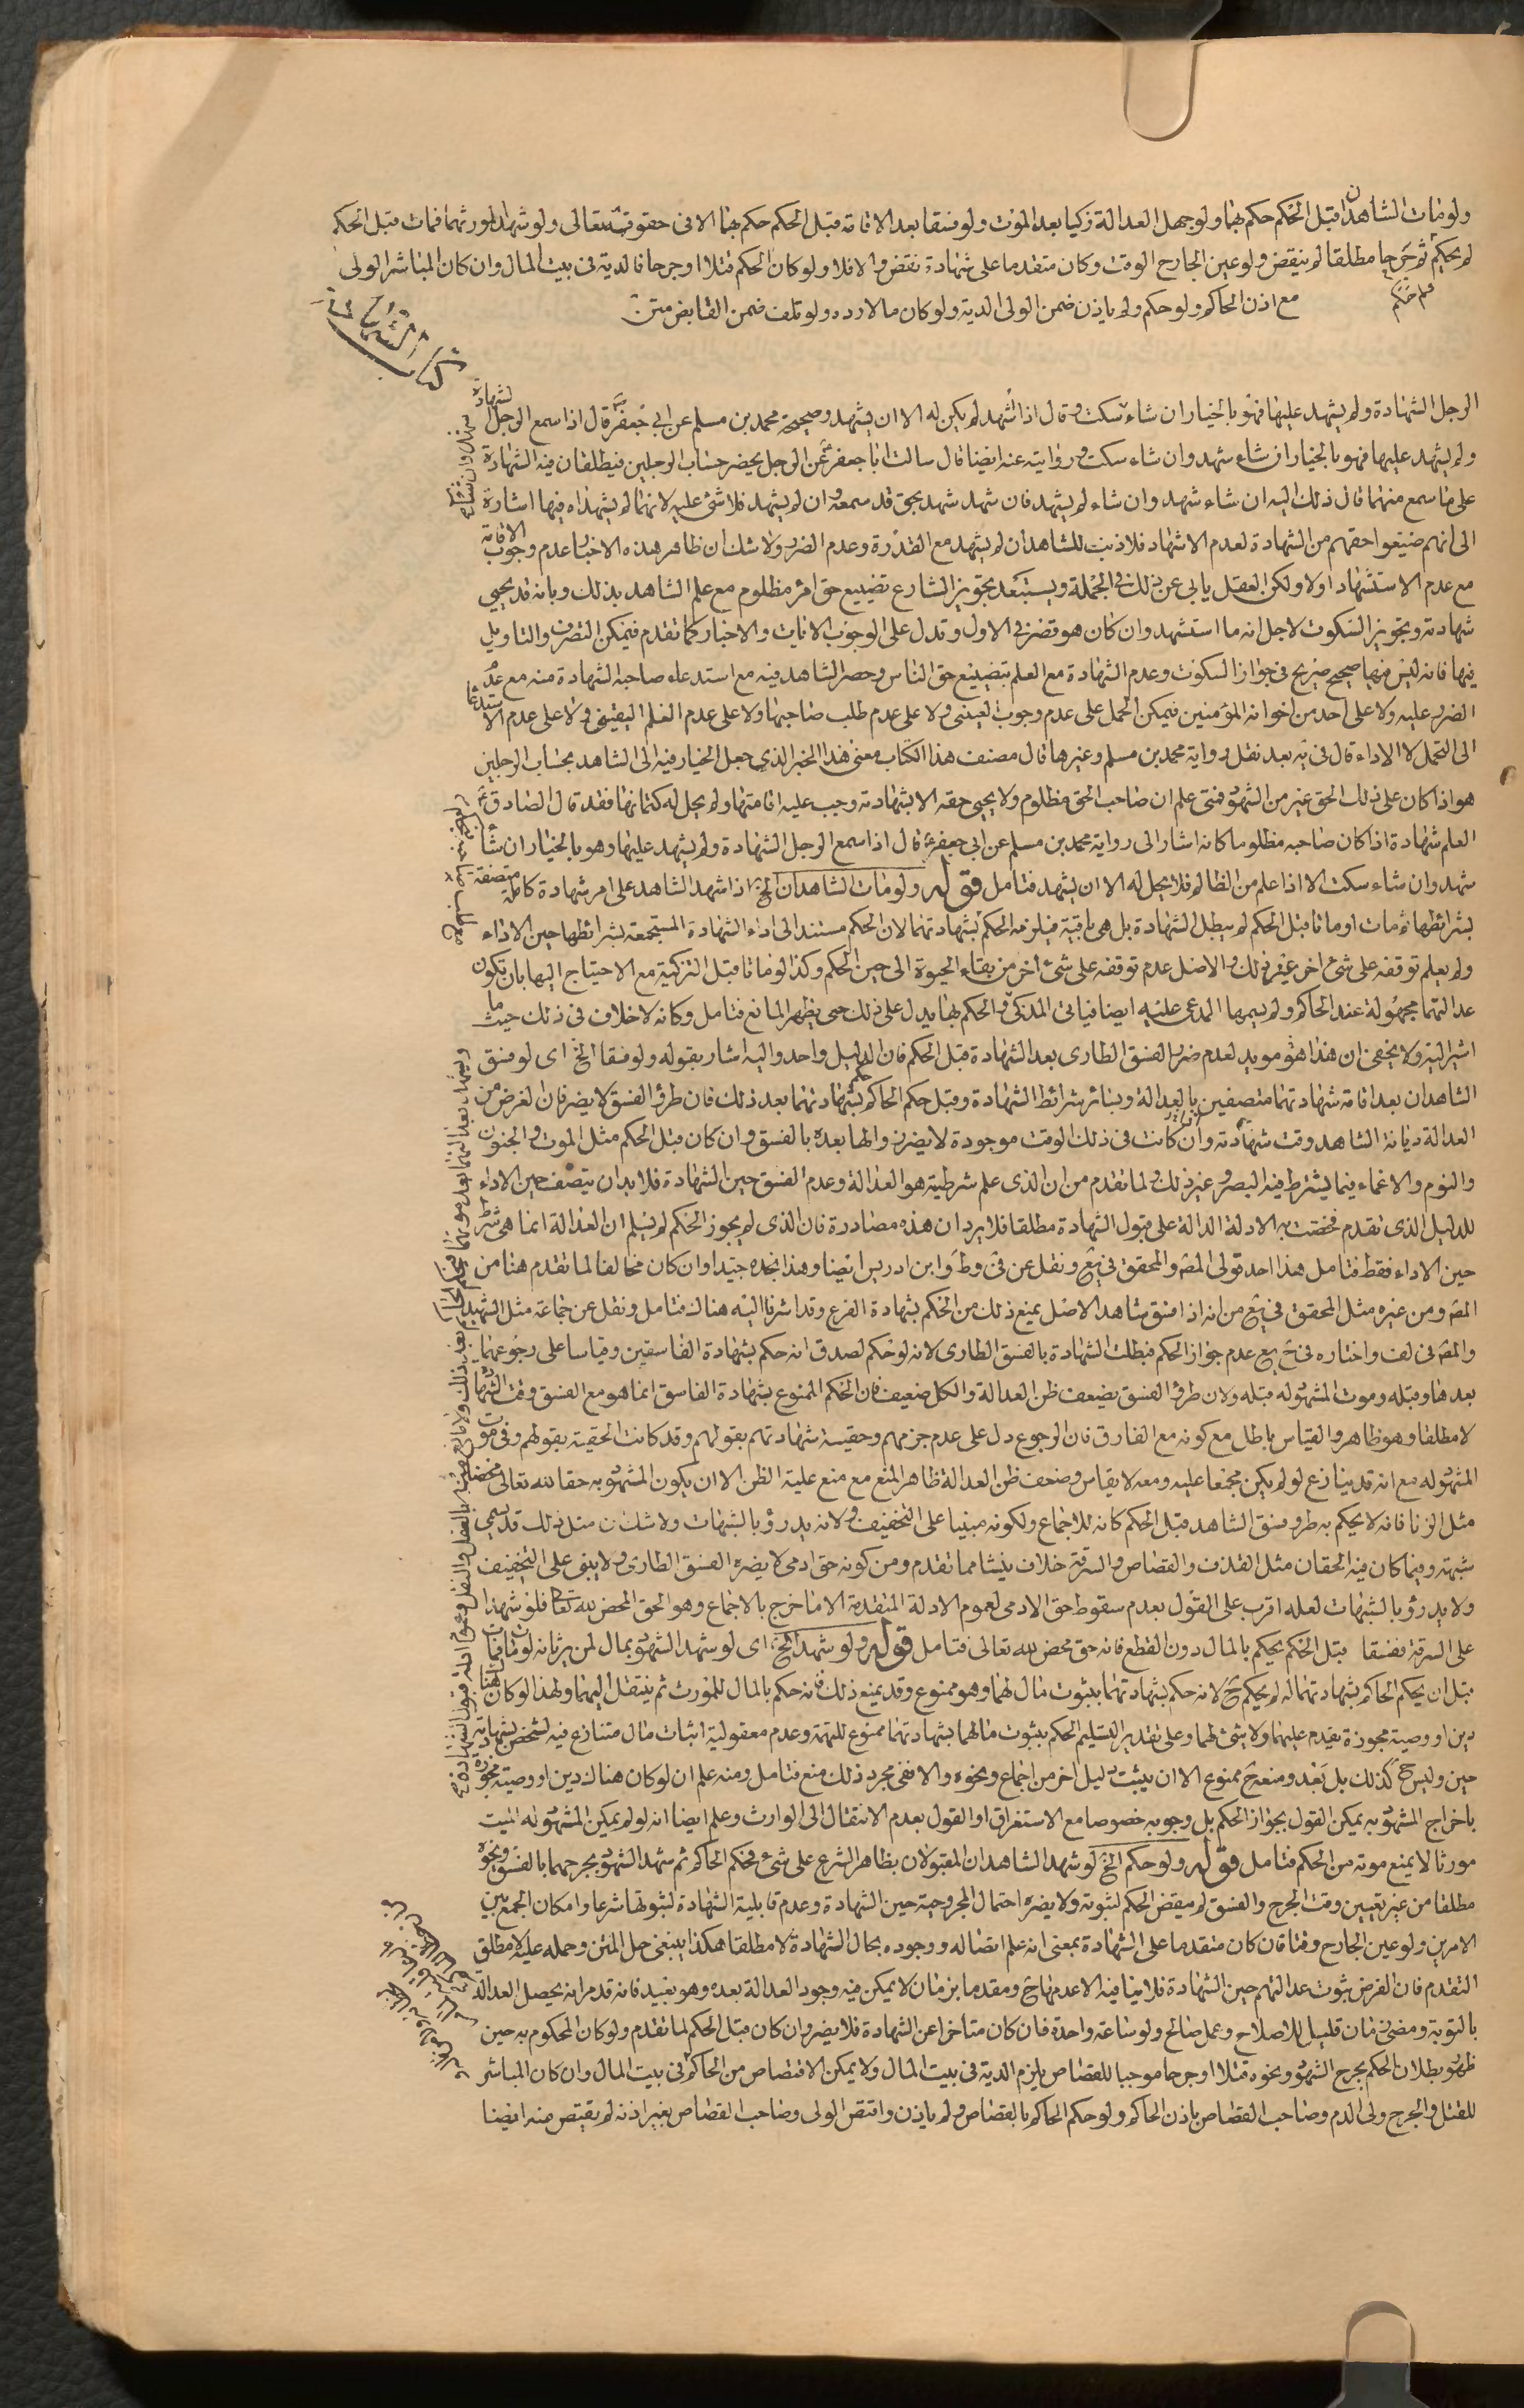 ولو مات الشاهدان قبل الحكم حكم بهما ولو جهل العدالة زكيا بعد الموت ولو فسقا بعد الاقامة قبل الحكم حكم بهما الا فى حقوقه تعالى ولو شهدا لمورثهما فمات قبل الحكم
لم يحكم ثم جرحا مطلقا لم ينقض ولو عين الجارح الوقت وكان متقدما على شهادة نقض و الا فلا ولو كان الحكم قتلا او جرحا فالدية فى بيت المال وان كان المباشر الولى
مع اذن الحاكم ولو حكم ولم ياذن ضمن الولى الدية ولو كان مالا رده ولو تلف ضمن القابض متن
كتاب الشهادات
الرجل الشهادة ولم يشهد عليها فهو بالخيار ان شاء سكت و قال اذا اشهد لم يكن له الا ان يشهد وصحيحة محمد بن مسلم عن ابى جعفر قال اذا سمع الرجل الشهادة
ولم يشهد عليها فهو بالخيار ان شاء شهد وان شاء سكت و روايته عنه ايضا قال سالت ابا جعفر عن الرجل يحضر حساب الرجلين فيطلقان منه الشهادة
على ما سمع منهما قال ذلك اليه ان شاء شهد وان شاء لم يشهد فان شهد شهد بحق قد سمعه وان لم يشهد فلا شئ عليه لانهما لم يشهداه فيها اشارة
الى انهم ضيعوا حقهم من الشهادة لعدم الاشهاد فلا ذنب للشاهدان لم يشهد مع القدرة وعدم الضرر ولا شك ان ظاهر هذه الاخبار عدم وجوب الاقامة
مع عدم الاستشهاد اولا ولكن العقل يابى عن ذلك فى الجملة ويستبعد تجويز الشارع تضييع حق امرء مظلوم مع علم الشاهد بذلك وبانه قد يحيى
شهادته وتجويز السكوت لاجل انه ما استشهد وان كان هو قصر فى الاول وتدل على الوجوب الايات والاخبار كما تقدم فيمكن التصرف والتاويل
فيها فانه ليس فيها صحيح صريح فى جواز السكوت وعدم الشهادة مع العلم بتضييع حق الناس وحصر الشاهد فيه مع استدعاء صاحبه الشهادة منه مع عدم
الضرر عليه ولا على احد من اخوانه المؤمنين فيمكن الحمل على عدم وجوب العينى ولا على عدم طلب صاحبها ولا على عدم العلم اليقينى ولا على عدم الاستدعاء
الى التحمل لا الاداء قال فى يه بعد نقل رواية محمد بن مسلم وغيرها قال مصنف هذا الكتاب معنى هذا الخبر الذى جعل الخيار فيه الى الشاهد بحساب الرجلين
هو اذا كان على ذلك الحق غيره من الشهود فمتى علم ان صاحب الحق مظلوم ولا يحيى حقه الا بشهادته وجب عليه اقامتها ولم يحل له كتمانها فقد قال الصادق
العلم شهادة اذا كان صاحبه مظلوما كانه اشار الى رواية محمد بن مسلم عن ابى جعفر قال اذا سمع الرجل الشهادة ولم يشهد عليها وهو بالخيار ان شاء
شهد وان شاء سكت الا اذا علم من الظالم فلا يحل له الا ان يشهد فتامل قوله ولو مات الشاهدان الخ اذا شهد الشاهد على امر شهادة كاملة متصفة
بشرائطها ثم مات او ماتا قبل الحكم لم يبطل الشهادة بل هى باقية فيلزمه الحكم بشهادتهما لان الحكم مستند الى اداء الشهادة المستجمعة بشرائطها حين الاداء
ولم يعلم توقفه على شئ اخر غير ذلك والاصل عدم توقفه على شئ اخر من بقاء الحيوة الى حين الحكم وكذا لو ماتا قبل التزكية مع الاحتياج اليها بان تكون
عدالتهما مجهولة عند الحاكم ولم يسمها المدعى عليه ايضا فياتى المذكى والحكم بها يدل على ذلك حتى يظهر المانع فتامل وكانه لا خلاف فى ذلك حيث ما
اشير اليه ولا يخفى ان هذا هو مويد لعدم ضرر الفسق الطارى بعد الشهادة قبل الحكم فان الدليل واحد واليه اشار بقوله ولو فسقا الخ اى لو فسق
الشاهدان بعد اقامة شهادتهما متصفين بالعدالة وبسائر شرائط الشهادة وقبل حكم الحاكم بشهادتهما بعد ذلك فان طرؤ الفسق لا يضر فان الغرض من
العدالة ديانة الشاهد وقت شهادته وان كانت فى ذلك الوقت موجودة لا يضر زوالها بعده بالفسق وان كان قبل الحكم مثل الموت والجنون
والنوم والاغماء فيما يشترط فيه البصر و غير ذلك ولما تقدم من ان الذى علم شرطيته هو العدالة وعدم الفسق حين الشهادة فلا بد ان يتصف حين الاداء
للدليل الذى تقدم فخصت به الادلة الدالة على قبول الشهادة مطلقا فلا يرد ان هذه مصادرة فان الذى لم يجوز الحكم لم يسلم ان العدالة انما هى شرط
حين الاداء فقط فتامل هذا احد قولى المص والمحقق فى يع ونقل عن ف وط وابن ادريس ايضا وهذا نجده جيدا وان كان مخالفا لما تقدم هنا من
المص ومن غيره مثل المحقق فى يع من انه اذا فسق شاهد الاصل يمنع ذلك من الحكم بشهادة الفرع وقد اشرنا اليه هناك فتامل ونقل عن جماعة مثل الشهيد
والمص فى لف واختاره فى ح يع عدم جواز الحكم فبطلت الشهادة بالفسق الطارى لانه لو حكم لصدق انه حكم بشهادة الفاسقين وقياسا على رجوعهما
بعدها وقبله وموت المشهود له قبله ولان طرؤ الفسق يضعف ظن العدالة والكل ضعيف فان الحكم الممنوع بشهادة الفاسق انما هو مع الفسق وقت الشهادة
لا مطلقا وهو ظاهر والقياس باطل مع كونه مع الفارق فان الرجوع دل على عدم جزمهم وحقيسة شهادتهم بقولهم وقد كانت الحقيته بقولهم وفى موت
المشهود له مع انه قد ينازع لو لم يكن مجمعا عليه ومعه لا يقاس وضعف ظن العدالة ظاهر المنع مع منع علية الظن الا ان يكون المشهود به حقا لله تعالى محضا
مثل الزنا فانه لا يحكم به طرو فسق الشاهد قبل الحكم كانه للاجماع ولكونه مبنيا على التخفيف و لانه يدرؤ بالشبهات ولا شك ان مثل ذلك قد يسمى
شبهة وفيما كان فيه الحقان مثل القذف والقصاص والسرقة خلاف ينشا مما تقدم ومن كونه حق ادمى لا يضره الفسق الطارى و لا يبنى على التخفيف
ولا يدرؤ بالشبهات لعله اقرب على القول بعدم سقوط حق الادمى لعموم الادلة المتقدمة الا ما خرج بالاجماع وهو الحق المحض لله تعا فلو شهدا
على السرقة ففسقا قبل الحكم يحكم بالمال دون القطع فانه حق محض لله تعالى فتامل قوله ولو شهدا الخ اى لو شهد الشهود بمال لمن يرثانه لو مات فمات
قبل ان يحكم الحاكم بشهادتهما له لم يحكم ح لانه حكم بشهادتهما بثبوت مال لهما وهو ممنوع وقد يمنع ذلك فانه حكم بالمال للمورث ثم ينتقل اليهما ولهذا لو كان هنا
دين او وصية مجوزة يقدم عليهما ولا شئ لهما وعلى تقدير التسليم الحكم بثبوت مالهما بشهادتهما ممنوع للتهمة وعدم معقولية اثبات مال متنازع فيه لشخص بشهادته
حين وليس ح كذلك بل بعد ومنعه ح ممنوع الا ان يثبت دليل اخر من اجماع ونحوه والا نفى مجرد ذلك منع فتامل ومنه علم ان لو كان هناك دين او وصية مجوزة
باخراج المشهود به يمكن القول بجواز الحكم بل وجوبه خصوصا مع الاستغراق او القول بعدم الانتقال الى الوارث وعلم ايضا انه لو لم يكن المشهود له الميت
مورثا لا يمنع موته من الحكم فتامل قوله ولو حكم الخ لو شهد الشاهدان المقبولان بظاهر الشرع على شئ فحكم الحاكم ثم شهد الشهود بجرحهما بالفسق ونحوه
مطلقا من غير تعيين وقت الجرح والفسق لم ينقض الحكم لثبوته ولا يضره احتمال المجروحية حين الشهادة وعدم قابلية الشهادة لثبوتها شرعا وامكان الجمع بين
الامرين ولو عين الجارح وقتا فان كان متقدما على الشهادة بمعنى انه علم اتصاله ووجوده بحال الشهادة لا مطلقا هكذا ينبغى حل المتن وحمله عليه لا مطلق
التقدم فان الفرض ثبوت عدالتهم حين الشهادة فلا ينافيه الا عدمها ح ومقدما بزمان لا يمكن فيه وجود العدالة بعده وهو بعيد فانه قد مر انه يحصل العدالة
بالتوبة ومضى زمان قليل للاصلاح وعمل صالح ولو ساعة واحدة فان كان متاخرا عن الشهادة فلا يضر وان كان قبل الحكم لما تقدم ولو كان المحكوم به حين
ظهور بطلان الحكم بجرح الشهود ونحوه قتلا او جرحا موجبا للقصاص يلزم الدية فى بيت المال ولا يمكن الاقتصاص من الحاكم فى بيت المال وان كان المباشر
للقتل والجرح ولى الدم وصاحب القصاص باذن الحاكم ولو حكم الحاكم بالقصاص ولم ياذن واقتص الولى وصاحب القصاص بغير اذنه لم يقتص منه ايضا